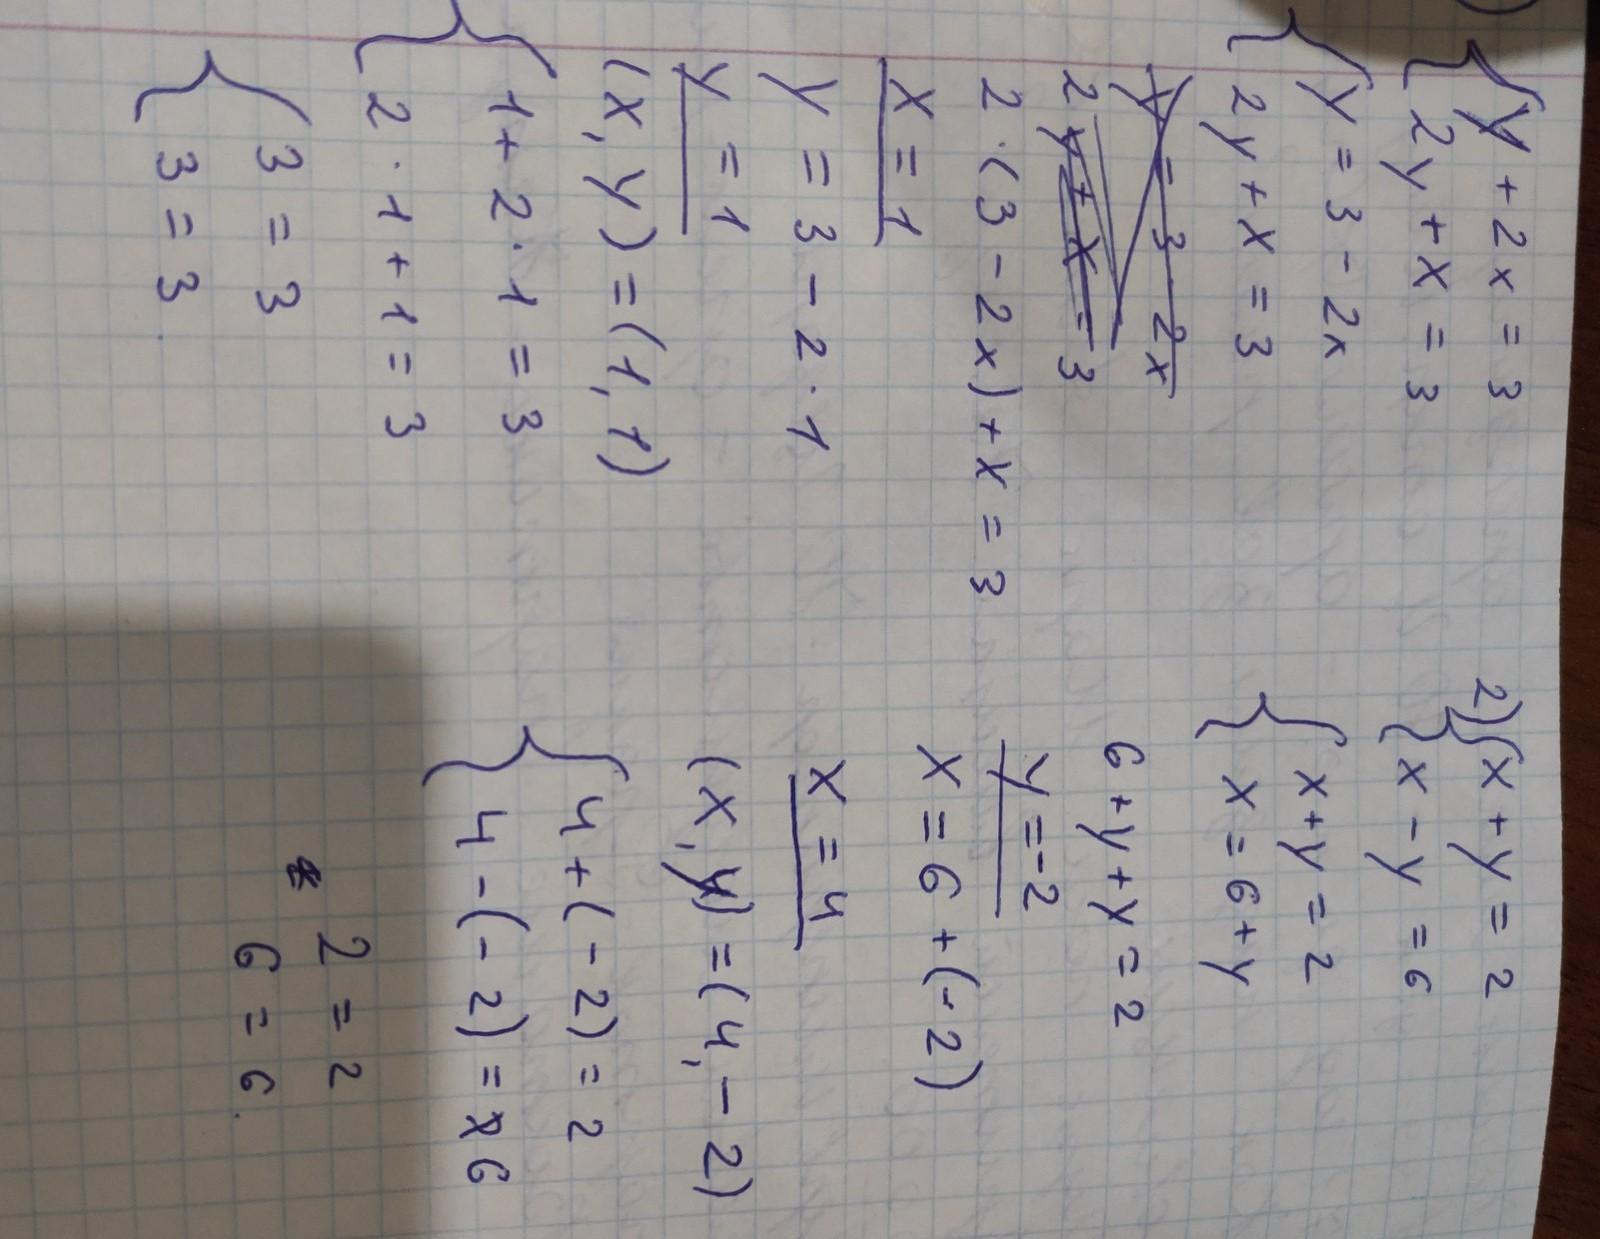 { y + 2x = 3
{ 2y + x = 3
{ y = 3 - 2x
{ 2y + x = 3
y = 3 - 2x
2y + x = 3
2 · (3 - 2x) + x = 3
x = 1
y = 3 - 2 · 1
y = 1
(x, y) = (1, 1)
{ 1 + 2 · 1 = 3
{ 2 · 1 + 1 = 3
{ 3 = 3
{ 3 = 3
2) { x + y = 2
{ x - y = 6
{ x + y = 2
{ x = 6 + y
6 + y + y = 2
y = -2
x = 6 + (-2)
x = 4
(x, y) = (4, -2)
{ 4 + (-2) = 2
{ 4 - (-2) = 6
2 = 2
6 = 6.